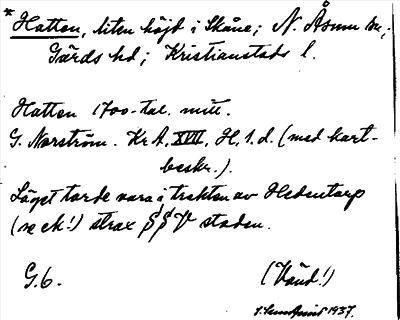 *Hatten, liten höjd i Skåne; N. Åsum sn,;
Gärds hd; Kristianstads l.
Hatten 1700-tal. mitt.
G. Norström. Kr A. XVII, H, 1. d. (med kart-
beskr.).
Läget torde vara i trakten av Hedentorp
(se ek!) strax SSV staden.
G.6.
(Vänd!)
1937.